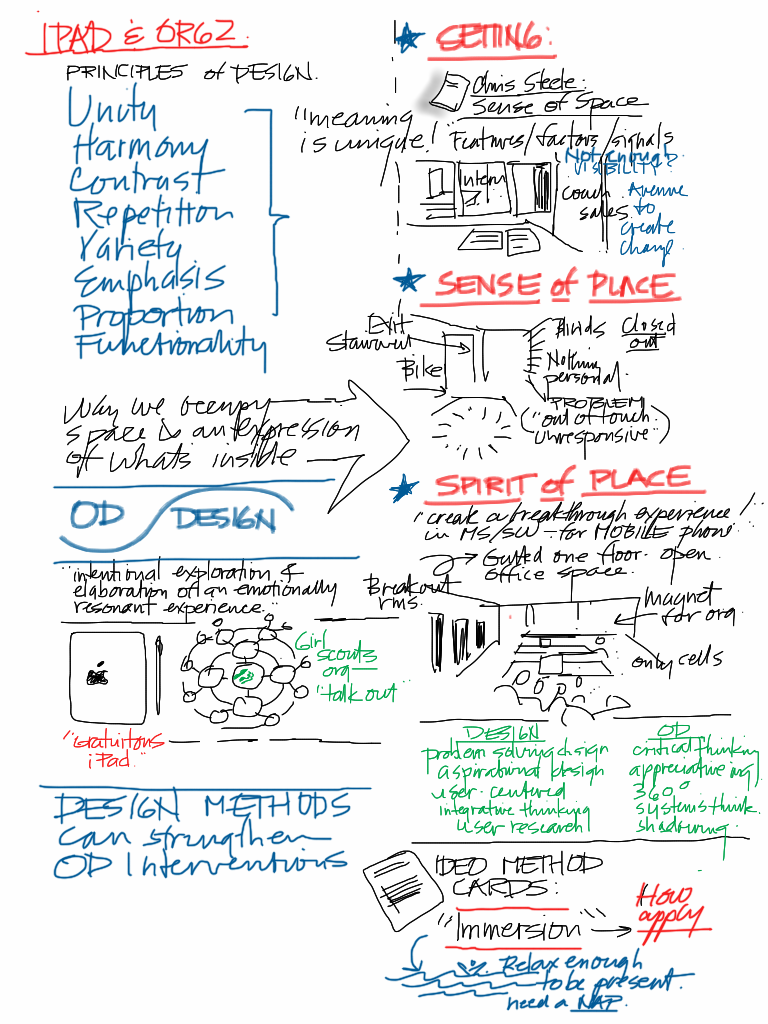 IPAD & ORGZ.
PRINCIPLES of DESIGN.
Unity
Harmony
Contrast
Repetition
Variety
Emphasis
Proportion
Functionality
"meaning
is unique!"
Way we occupy
space is an expression
of whats inside
OD DESIGN
"intentional exploration &
elaboration of an emotionally
resonant experience."
Girl
scouts
org
"talk out"
"Gratuitous
iPad."
DESIGN METHODS
can strengthen
OD Interventions
SETTING:
Chris Steele:
Sense of Space
Features/factors/signals
Not enough
VISIBILITY?
Intern
Couch
sales
Avenue
to
create
change
SENSE of PLACE
Exit
Bike
Blinds Closed
out
Nothing
personal
PROBLEM
"out of touch
unresponsive"
SPIRIT of PLACE
"create a breakthrough experience!"
in MS/SW - for MOBILE phone
Gutted one floor - open
office space.
Breakout
rms.
Magnet
for org
only cells
DESIGN
problem solving design
aspirational design
user-centered
integrative thinking
user research
OD
critical thinking
appreciative inq)
360°
systems think.
shadowing.
IDEO METHOD
CARDS:
"Immersion"
How
apply
Relax enough
to be present.
need a NAP.